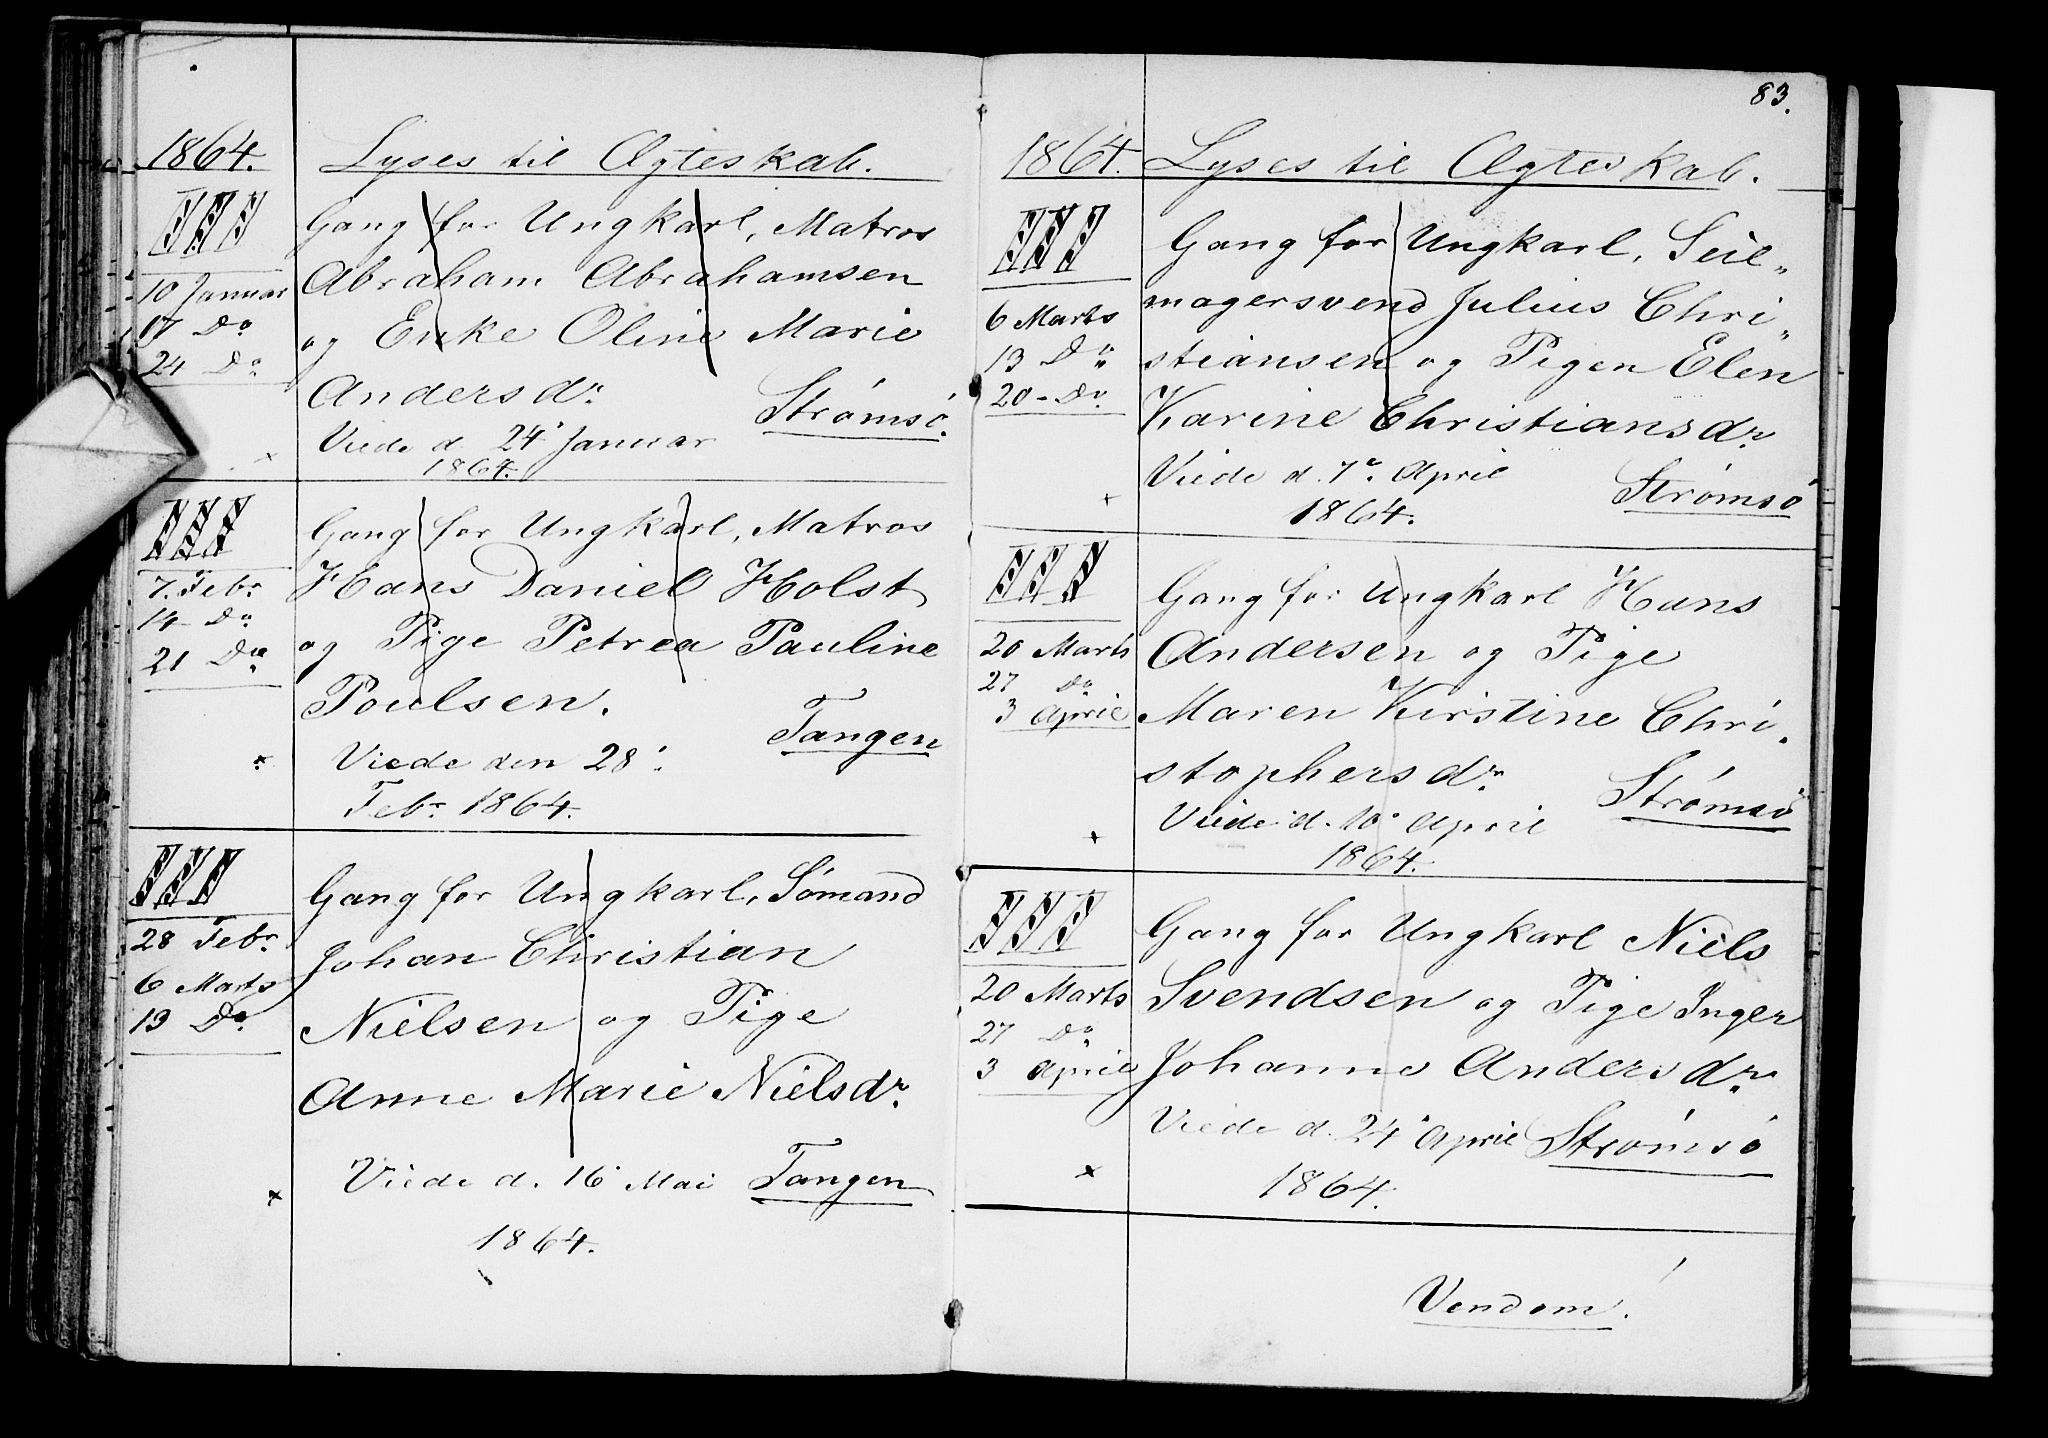 1864. Lyses til Ægteskab.
III
10 Januar
17 Do
24 Do
Gang for Ungkarl, Matros
Abraham Abrahamsen
og Enke Oline Marie
Andersdr.
Strømsö.
Viede d. 24 Januar
1864.
III
7. Febr
14 Do
21 Do
Gang for Ungkarl, Matros
Hans Daniel Holst
og Pige Petrea Pauline
Poulsen.
Tangen
Viede den 28
Febr. 1864.
III
28 Febr.
6 Marts
13 Do
Gang for Ungkarl, Sömand
Johan Christian
Nielsen og Pige
Anne Marie Nielsdr.
Viede d. 16 Mai Tangen
1864.
83.
1864. Lyses til Ægteskab.
III
6 Marts
13 Do
20 - Do
Gang for Ungkarl, Seil„
magersvend Julius Chri„
stiansen og Pigen Elen
Karine Christiansdr.
Viede d. 7 April
Strømsö
1864.
III
20 Marts
27 Do
3 April
Gang for Ungkarl Hans
Andersen og Pige
Maren Kirstine Chri„
stophersdr.
Strømsö
Viede d. 10 April
1864.
III
20 Marts
27 Do
3 April
Gang for Ungkarl Niels
Svendsen og Pige Inger
Johanne Andersdr.
Viede d. 24 April Strømsö
1864.
Vendom!